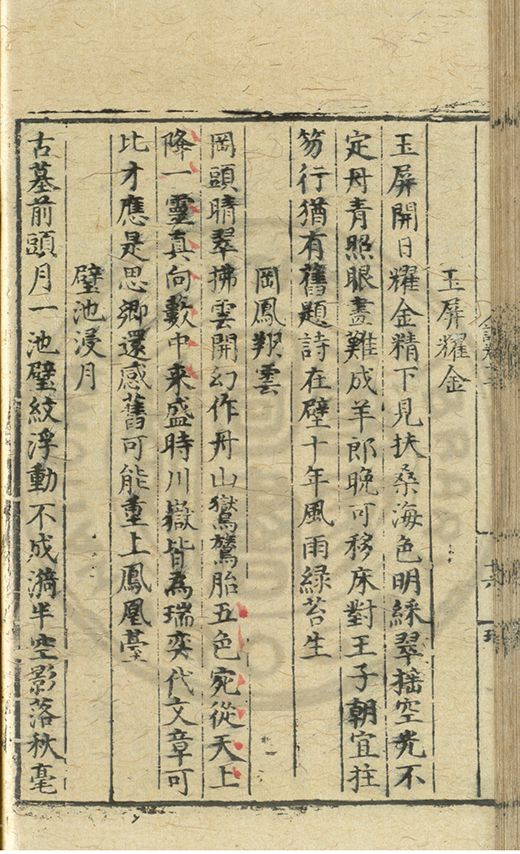 玉屏耀金
玉屏開日耀金精下見扶桑海色明綵翠揺空光不
定丹青照眼畫難成羊郎晩可移床對王子朝宜拄
笏行猶有舊題詩在壁十年風雨緑苔生
岡鳳翔雲
岡頭晴翠拂雲開幻作丹山鸑鷟胎五色宛從天上
降一靈真向藪中来盛時川嶽皆為瑞奕代文章可
比才應是思卿還感舊可能重上鳳凰臺
璧池浸月
古墓前頭月一池璧紋浮動不成漪半空影落秋毫